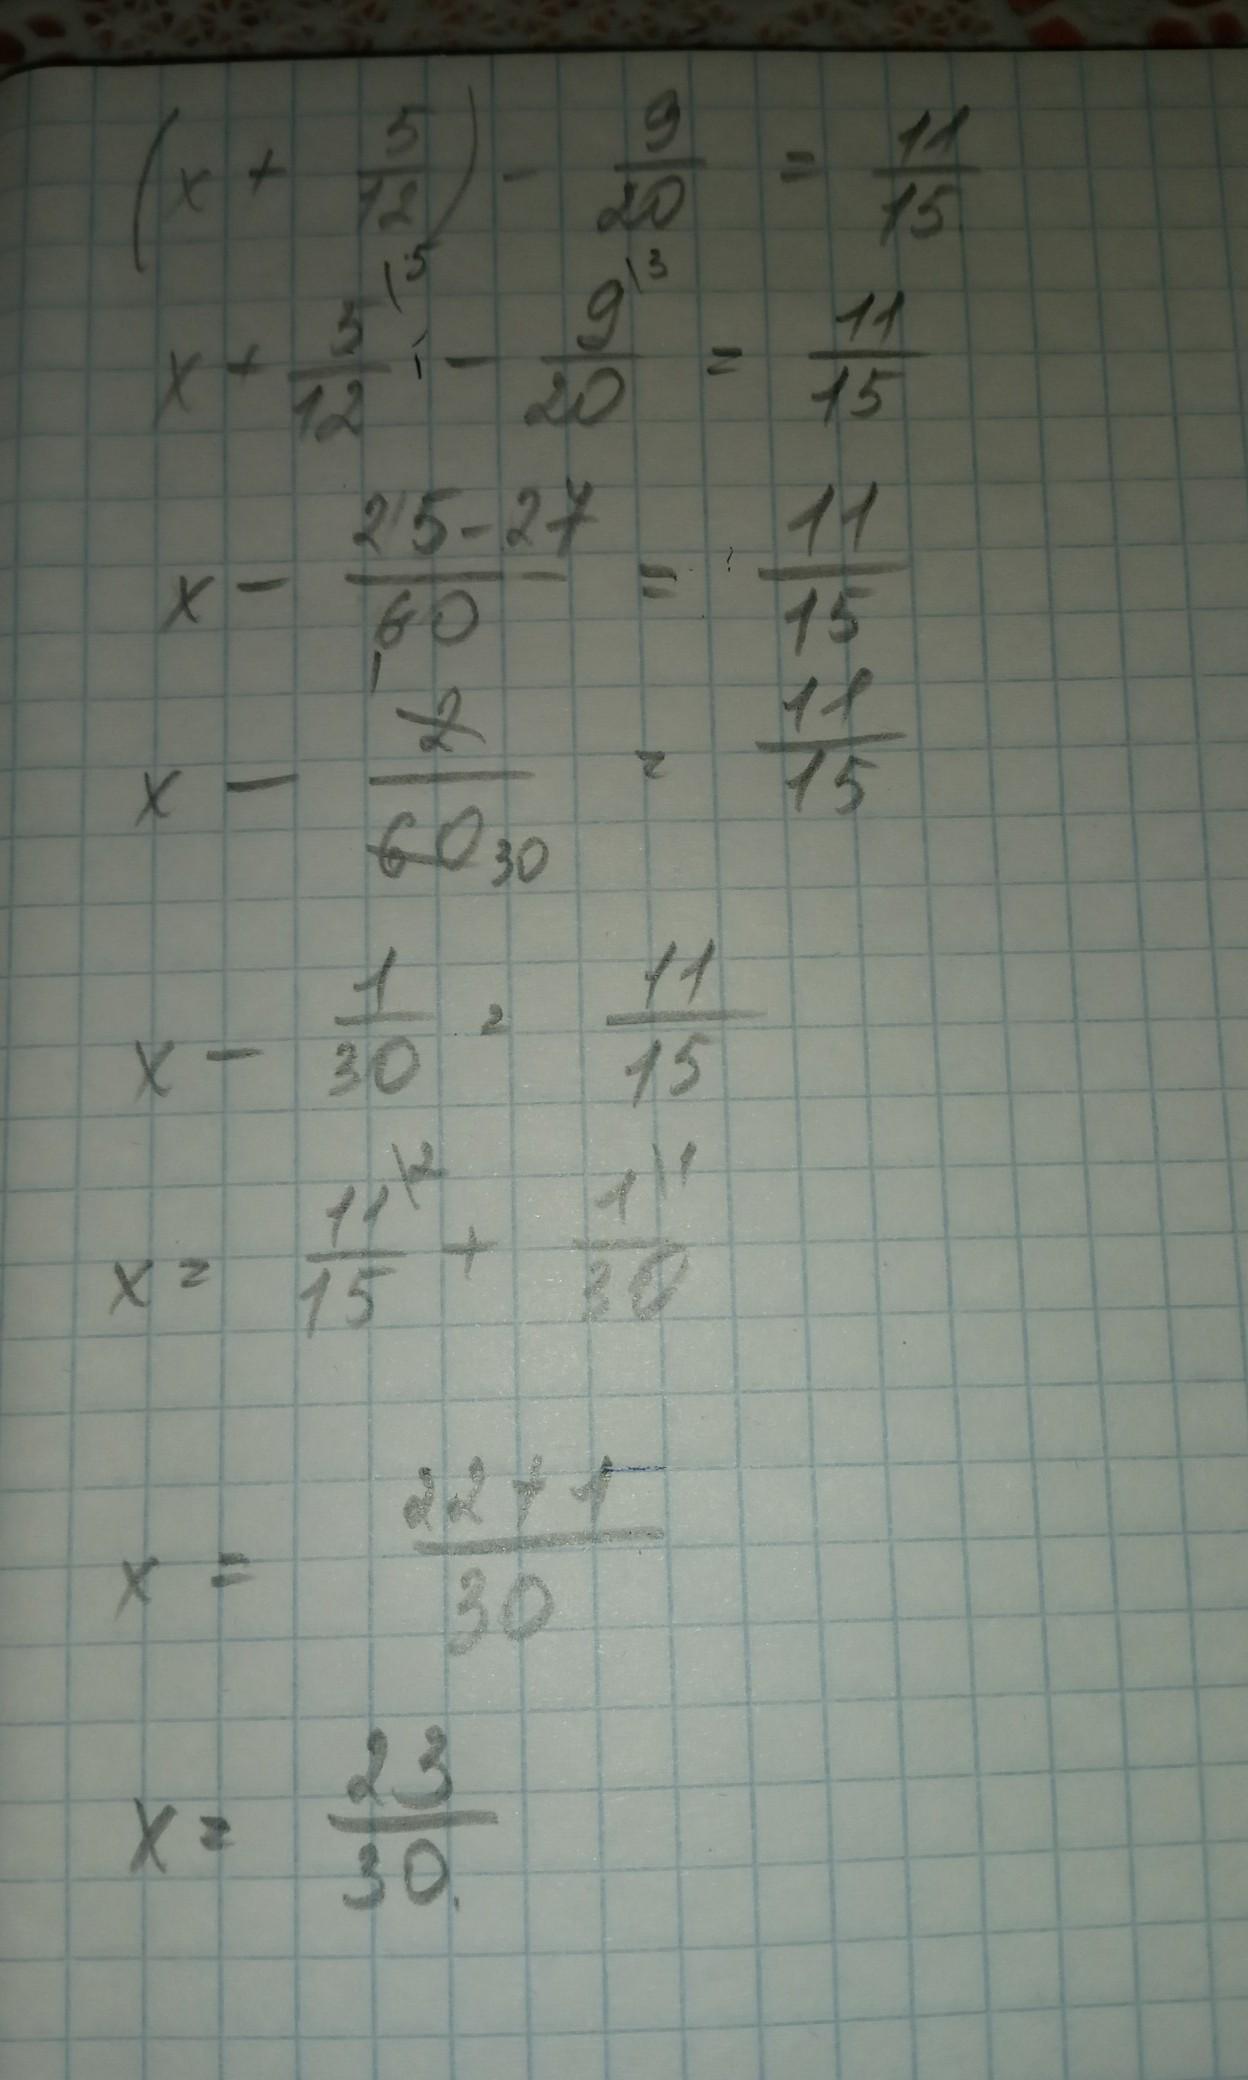 (x + 5/12) - 9/20 = 11/15
x + 5/12 \5 - 9/20 \3 = 11/15
x - 25-27/60 = 11/15
x - 1 2/60 30 = 11/15
x - 1/30 = 11/15
x = 11/15 \2 + 1/30 \1
x = 22+1/30
x = 23/30.